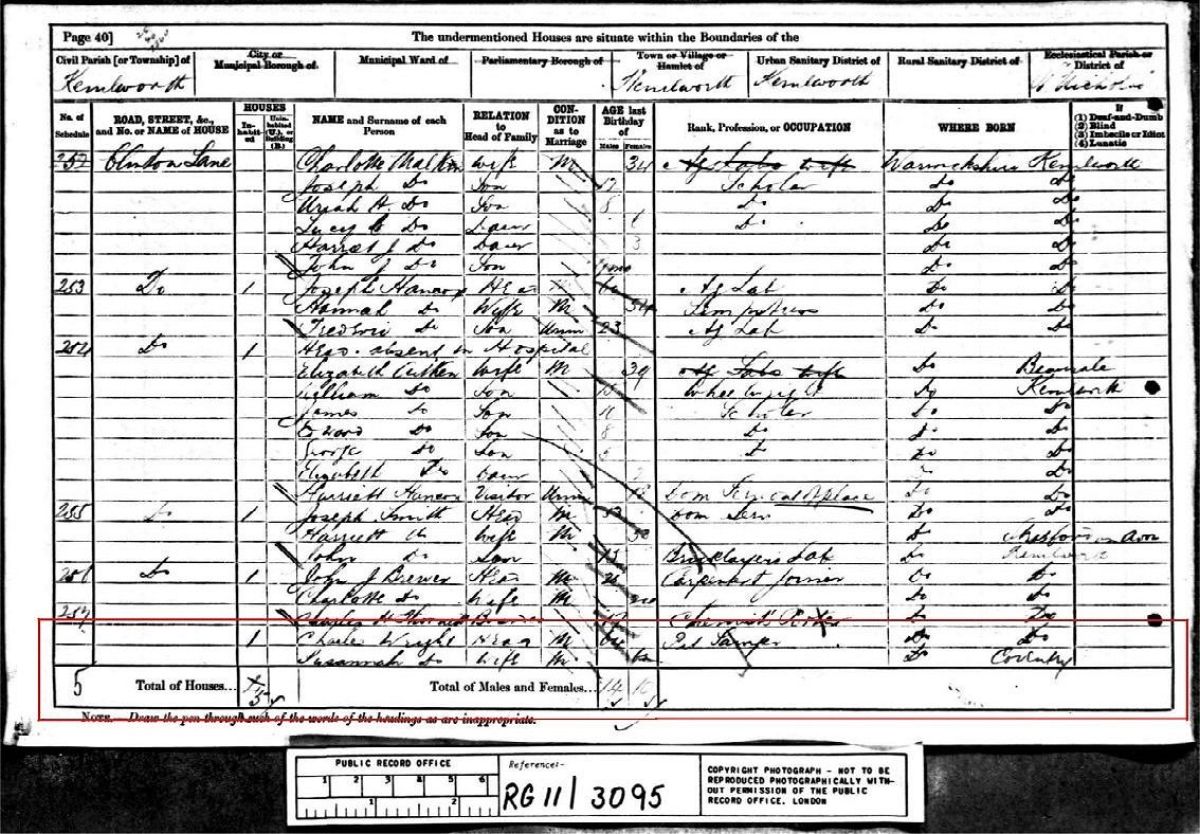 Page 40]
The undermentioned Houses are situate within the Boundaries of the
Civil Parish [or Township] of
City or Municipal Borough of
Municipal Ward of
Parliamentary Borough of
Town or Village or Hamlet of
Urban Sanitary District of
Rural Sanitary District of
Ecclesiastical Parish or District of
Kenilworth Kenilworth Kenilworth St Nicholas
No. of Schedule
ROAD, STREET, &c., and No. or NAME of HOUSE
HOUSES
In-habit-ed
Unin-habited (U.), or Building (B.)
NAME and Surname of each Person
RELATION to Head of Family
CON-DITION as to Marriage
AGE last Birthday of
Males Females
Rank, Profession, or OCCUPATION
WHERE BORN
If
(1) Deaf-and-Dumb
(2) Blind
(3) Imbecile or Idiot
(4) Lunatic
252 Clinton Lane Charlotte Malkin wife M 34 Ag Labs wife Warwickshire Kenilworth
Joseph Do Son Scholar Do Do
Uriah H. Do Son 8 Do Do Do
Lucy Do Daur Do Do Do
Harriet J Do Daur 3 Do Do
John J Do Son Do Do
253 Do 1 Joseph Hancox Head Ag Lab Do Do
Hannah Do Wife M Do Do
Frederic Do Son Unm 23 Ag Lab Do Do
254 Do 1 Head absent in Hospital
Elizabeth wife M 39 Ag Labs wife Do
William Do Son Wheelwright Do Kenilworth
James Do Son 11 Scholar Do Do
Edward Do Son 8 Do Do Do
George Do Son Do Do Do
Elizabeth Do Daur Do
Harriett Hancox Visitor Unm Dom Serv out of place Do Do
255 Do 1 Joseph Smith Head M Dom Serv Do Do
Harriett Do wife M Do on Avon
John Do Son Bricklayers Lab Do Kenilworth
256 Do 1 John J Brewer Head M Carpenter Joiner Do Do
Charlotte Do wife M Do Do
257 Charles H Chemists Porter Do Do
1 Charles Wright Head M Pit Sawyer Do Do
Susannah Do wife M Do Coventry
5 Total of Houses... 5 Total of Males and Females... 14
NOTE.—Draw the pen through such of the words of the headings as are inappropriate.
PUBLIC RECORD OFFICE
1 2 3 4 5 6
1 2
Reference:-
RG 11/ 3095
COPYRIGHT PHOTOGRAPH - NOT TO BE
REPRODUCED PHOTOGRAPHICALLY WITH-
OUT PERMISSION OF THE PUBLIC
RECORD OFFICE, LONDON